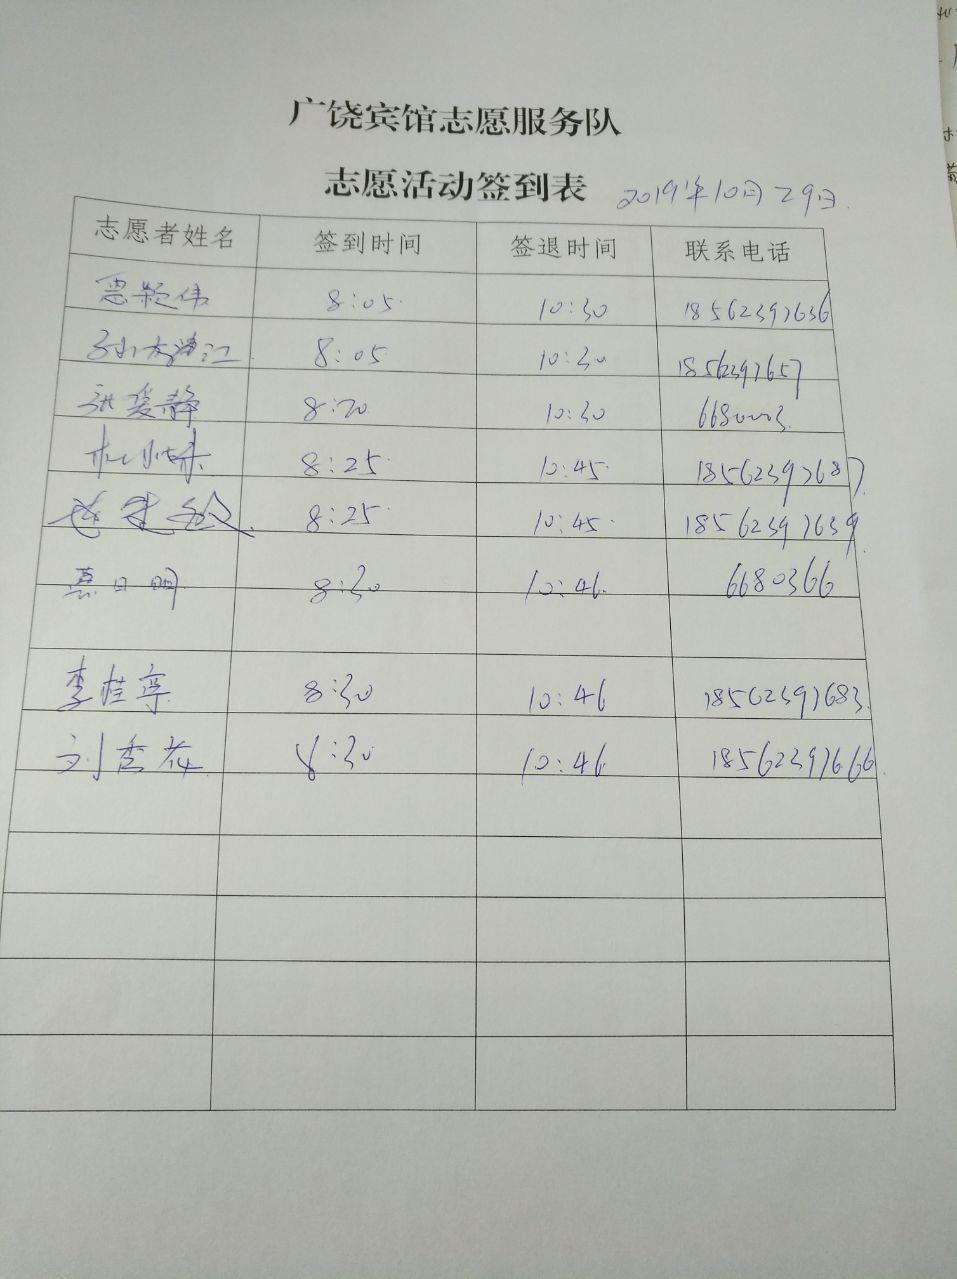 广饶宾馆志愿服务队
志愿活动签到表 2019年10月29日
志愿者姓名 签到时间 签退时间 联系电话
8:05 10:30 18562397636
8:05 10:30 18562397657
张爱静 8:20 10:30 6680003
8:25 10:45 18562397687
8:25 10:45 18562397639
日明 8:30 10:46 6680366
李桂亭 8:30 10:46 18562397683
刘杏花 8:30 10:46 18562397666